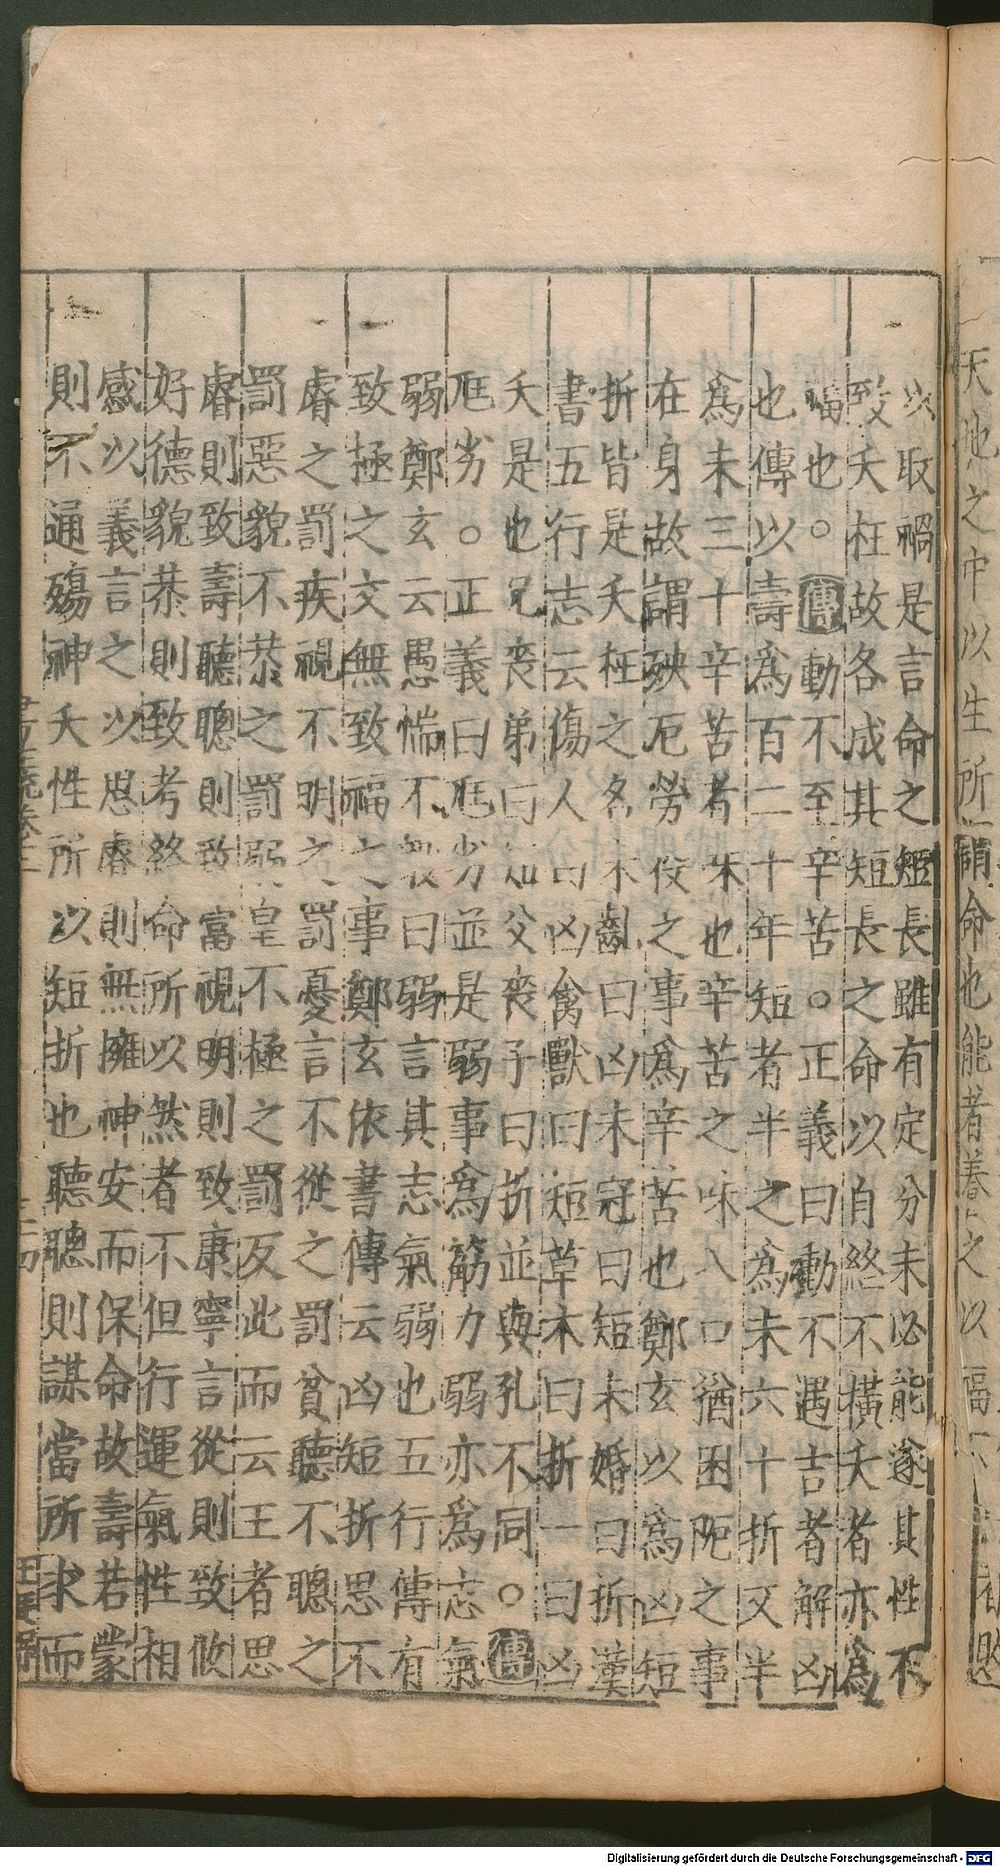 天地之中以生所謂命也能者養之以福不
以取禍是言命之短長雖有定分未必能遂其性不
致夭枉故各成其短長之命以自終不橫夭者亦爲
福也。傳動不至辛苦。正義曰動不遇吉者解凶
也傳以壽爲百二十年短者半之爲未六十折又半
爲未三十辛苦者味也辛苦之味入口猶困阨之事
在身故謂殃厄勞役之事爲辛苦也鄭玄以爲凶短
折皆是夭枉之名未齔曰凶未冠曰短未婚曰折漢
書五行志云傷人曰凶禽獸曰短草木曰折一曰凶
夭是也兄喪弟曰短父喪子曰折並與孔不同。傳
尫劣。正義曰尫劣並是弱事爲筋力弱亦爲志氣
弱鄭玄云愚懦不毅曰弱言其志氣弱也五行傳有
致極之文無致福之事鄭玄依書傳云凶短折思不
睿之罰疾視不明之罰憂言不從之罰貧聽不聰之
罰惡貌不恭之罰弱皇不極之罰反此而云王者思
睿則致壽聽聰則致富視明則致康寧言從則致攸
好德貌恭則致考終命所以然者不但行運氣性相
感以義言之以思睿則無擁神安而保命故壽若蒙
則不通殤神夭性所以短折也聽聰則謀當所求而
Digitalisierung gefördert durch die Deutsche Forschungsgemeinschaft - DFG